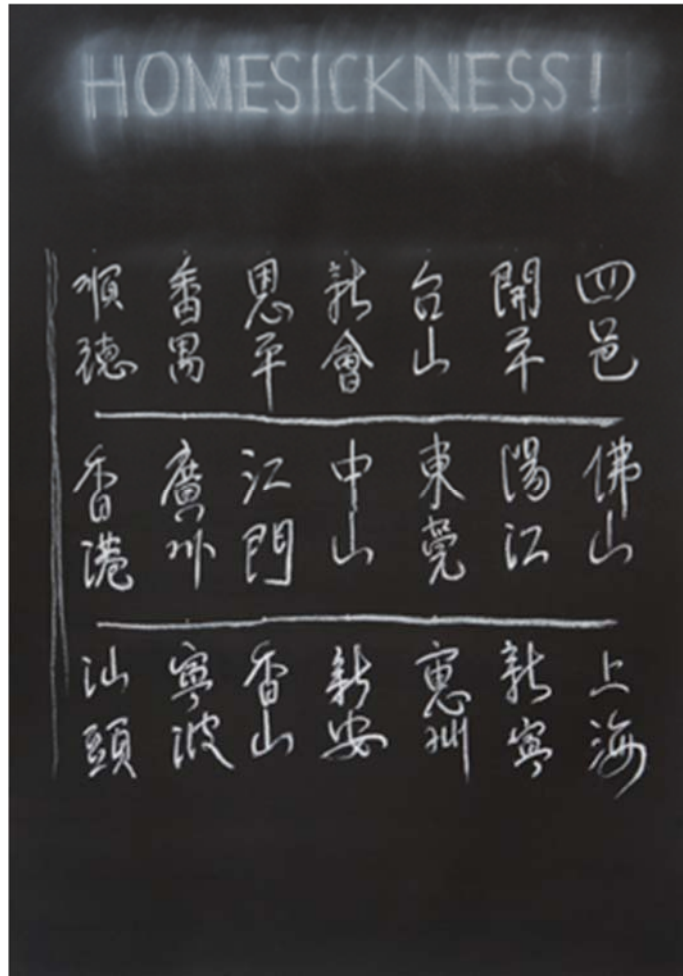 HOMESICKNESS!
四邑 開平 台山 新會 恩平 番禺 順德
佛山 陽江 東莞 中山 江門 廣州 香港
上海 新寧 惠州 新安 香山 寧波 汕頭